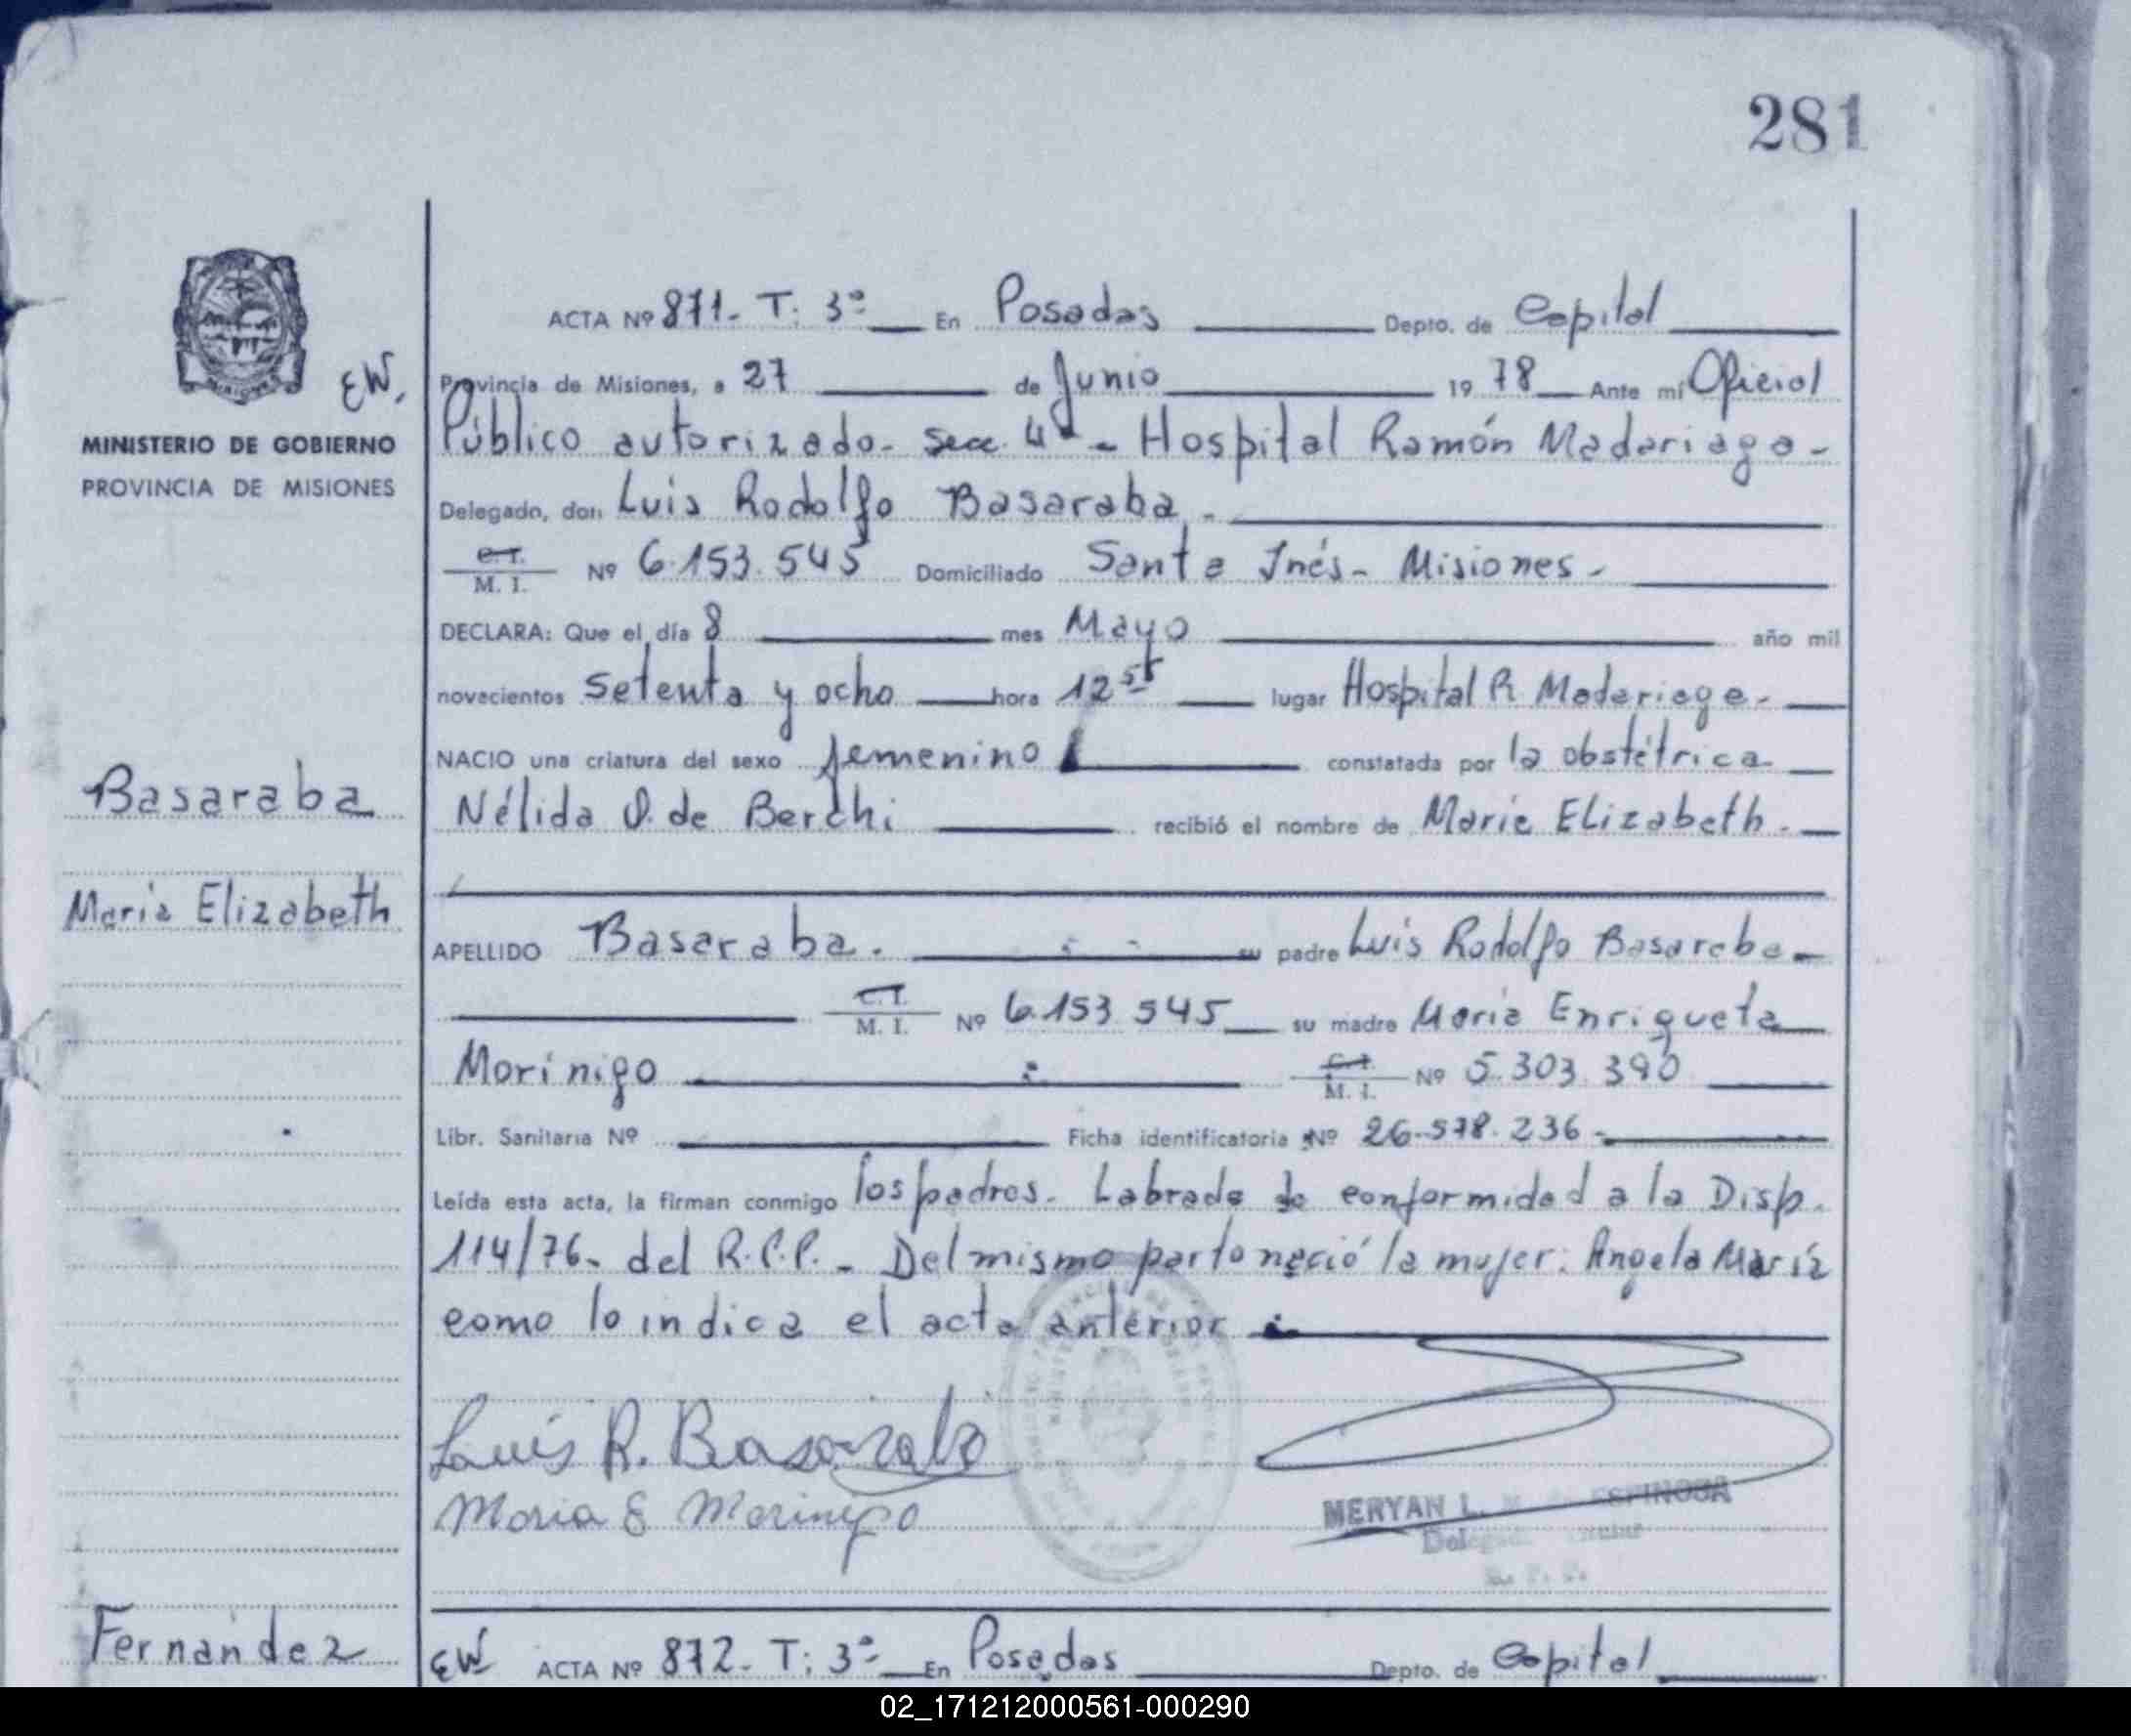 281
ACTA Nº 871- T: 3º En Posadas Depto. de Capital
EW. Provincia de Misiones, a 27 de Junio 19 78 Ante mí Oficial
MINISTERIO DE GOBIERNO
PROVINCIA DE MISIONES
Público autorizado- Secc. 4ª - Hospital Ramón Madariaga-
Delegado, don Luis Rodolfo Basaraba.-
C.I.
M. I. Nº 6.153.545 Domiciliado Santa Inés- Misiones-
DECLARA: Que el día 8 mes Mayo año mil
novecientos setenta y ocho hora 12 55 lugar Hospital R Madariaga-
NACIO una criatura del sexo femenino constatada por la obstétrica
Basaraba
Nélida O. de Berchi recibió el nombre de María Elizabeth-
María Elizabeth
APELLIDO Basaraba. su padre Luis Rodolfo Basaraba-
C.I.
M. I. Nº 6.153 545 su madre María Enriqueta
Morínigo C.I.
M. I. Nº 5.303.390
Libr. Sanitaria Nº Ficha identificatoria Nº 26-578.236-
Leída esta acta, la firman conmigo los padres. Labrada de conformidad a la Disp.
114/76- del R.P.P. - Del mismo parto nació la mujer: Angela María
como lo indica el acta anterior
Luis R. Basaraba
Maria E Morinigo
MERYAN L. ESPINOSA
Fernández
EW ACTA Nº 872- T: 3º- En Posadas Depto. de Capital
02_171212000561-000290